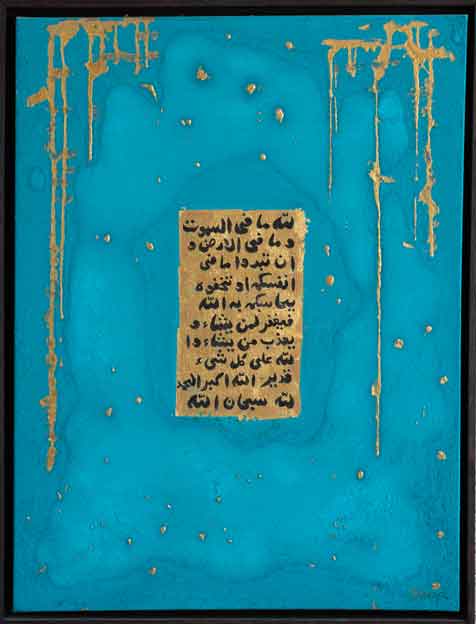 لله ما فى السموت
و ما فى الارض و
ان تبدوا ما فى
انفسكم او تخفوه
يحاسبكم به الله
فيغفر لمن يشاء و
يعذب من يشاء وا
لله على كل شىء
قدير الله اكبر الحمد
لله سبحان الله